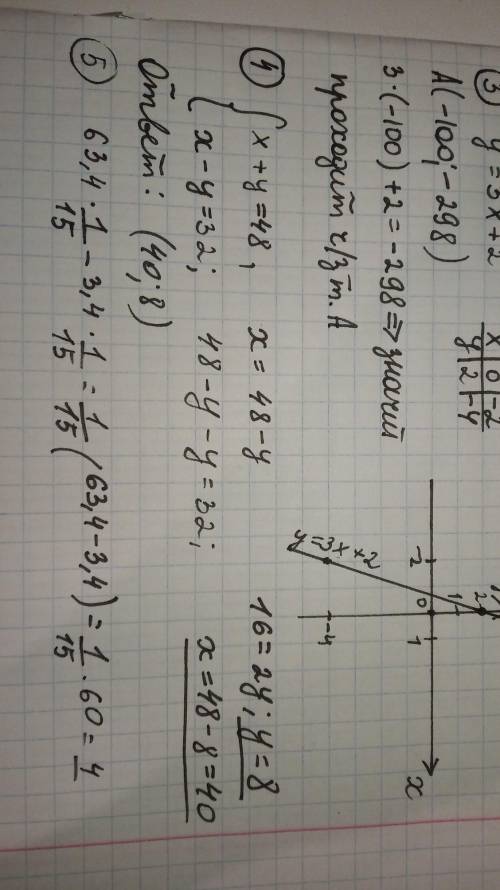 ③ y = 3x + 2
A(-100; -298)
3·(-100) + 2 = -298 ⇒ значит
проходит ч/з т. A
x | 0 | -2
y | 2 | -4
y = 3x + 2
-2
0
1
1
2
-4
x
④ { x + y = 48, x = 48 - y 16 = 2y; y = 8
{ x - y = 32; 48 - y - y = 32; x = 48 - 8 = 40
Ответ: (40; 8)
⑤ 63,4 · 1/15 - 3,4 · 1/15 = 1/15 (63,4 - 3,4) = 1/15 · 60 = 4